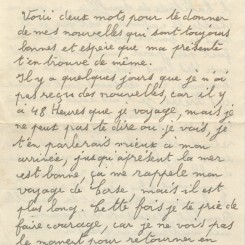 Voici deux mots pour te donner
de mes nouvelles qui sont toujours
bonnes et espère que ma présente
t'en trouve de même.
Il y a quelques jours que je n'ai
pas reçu des nouvelles, car il y
à 48 Heures que je voyage, mais je
ne peut pas te dire ou je vais, je
t'en parlerais mieux a mon
arrivée, jusqu'aprésent la mer
est bonne, ça me rappelle mon
voyage de Corse, mais il est
plus long. Cette fois je te prie de
faire courage, car je ne vois pas
le moment pour retourner en